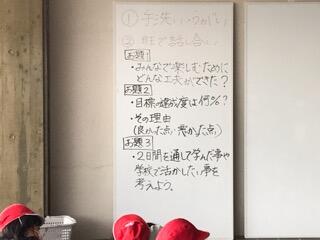 ① 手洗い・うがい
② 班で話し合い
お題1
・みんなで楽しむために
どんな工夫ができた？
お題2
・目標の達成度は何%？
・その理由
(良かった点・悪かった点)
お題3
・2日間を通して学んだ事や
学校で活かしたい事を
考えよう。